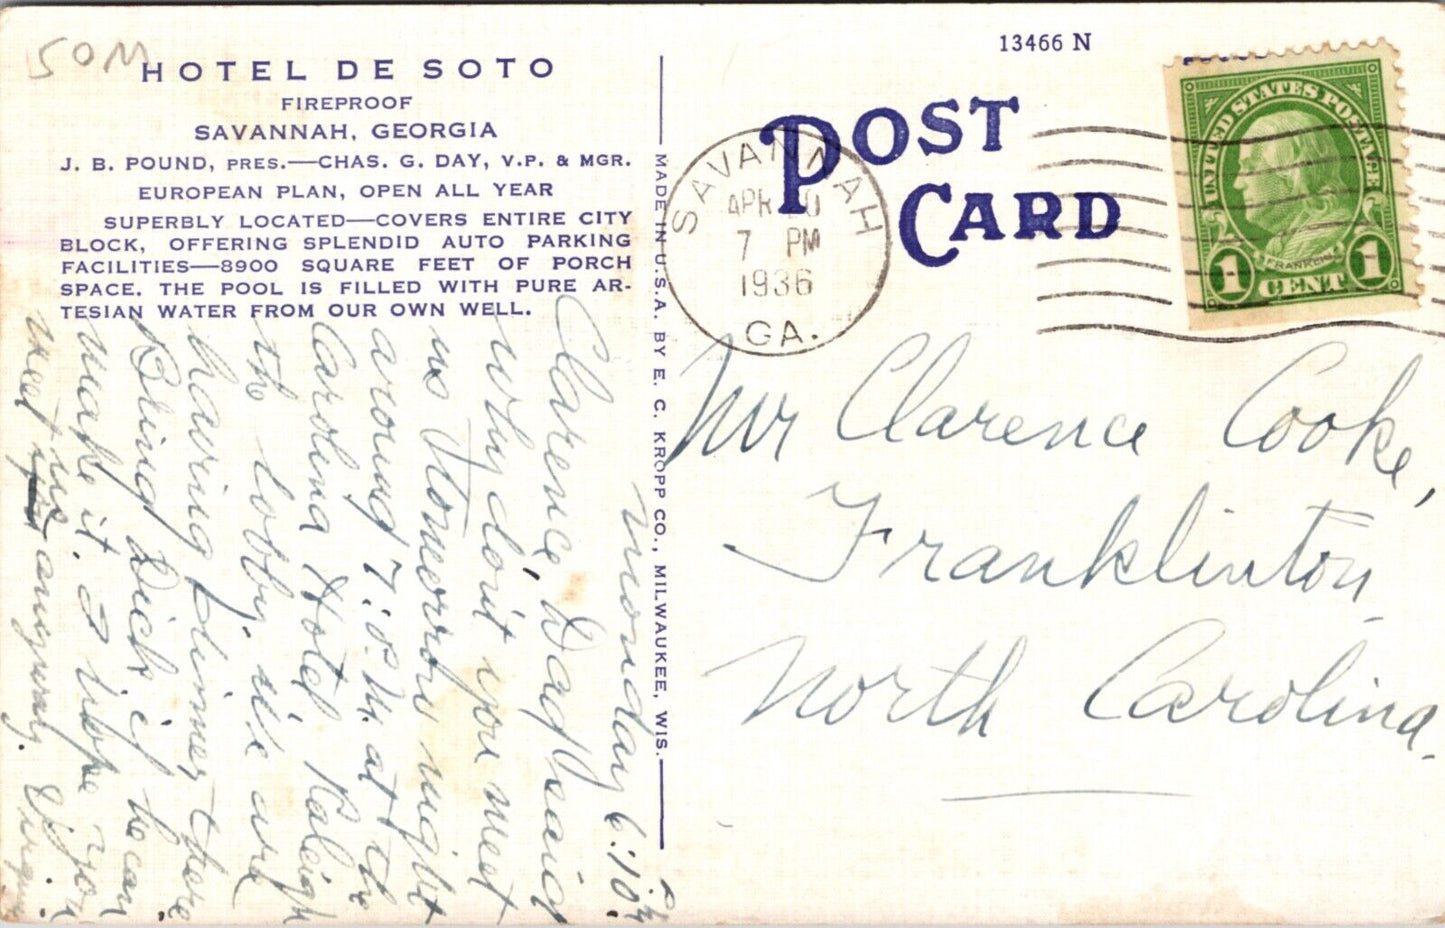 50M
HOTEL DE SOTO
FIREPROOF
SAVANNAH, GEORGIA
J. B. POUND, PRES.—CHAS. G. DAY, V.P. & MGR.
EUROPEAN PLAN, OPEN ALL YEAR
SUPERBLY LOCATED—COVERS ENTIRE CITY
BLOCK, OFFERING SPLENDID AUTO PARKING
FACILITIES—8900 SQUARE FEET OF PORCH
SPACE. THE POOL IS FILLED WITH PURE AR-
TESIAN WATER FROM OUR OWN WELL.
Monday 6:10 P.M.
Clarence, Dad said
why don't you meet
us Tomorrow night
around 7: P.M. at the
Carolina Hotel, Raleigh
the lobby. We are
having dinner there
Bring Dick if he can
make it. I hope you
meet us anyway.
MADE IN U.S.A. BY E. C. KROPP CO., MILWAUKEE, WIS.
13466 N
POST
CARD
SAVANNAH
APR 0
7 PM
1936
GA.
UNITED STATES POSTAGE
FRANKLIN
1 CENT 1
Mr Clarence Cooke,
Franklinton,
North Carolina.